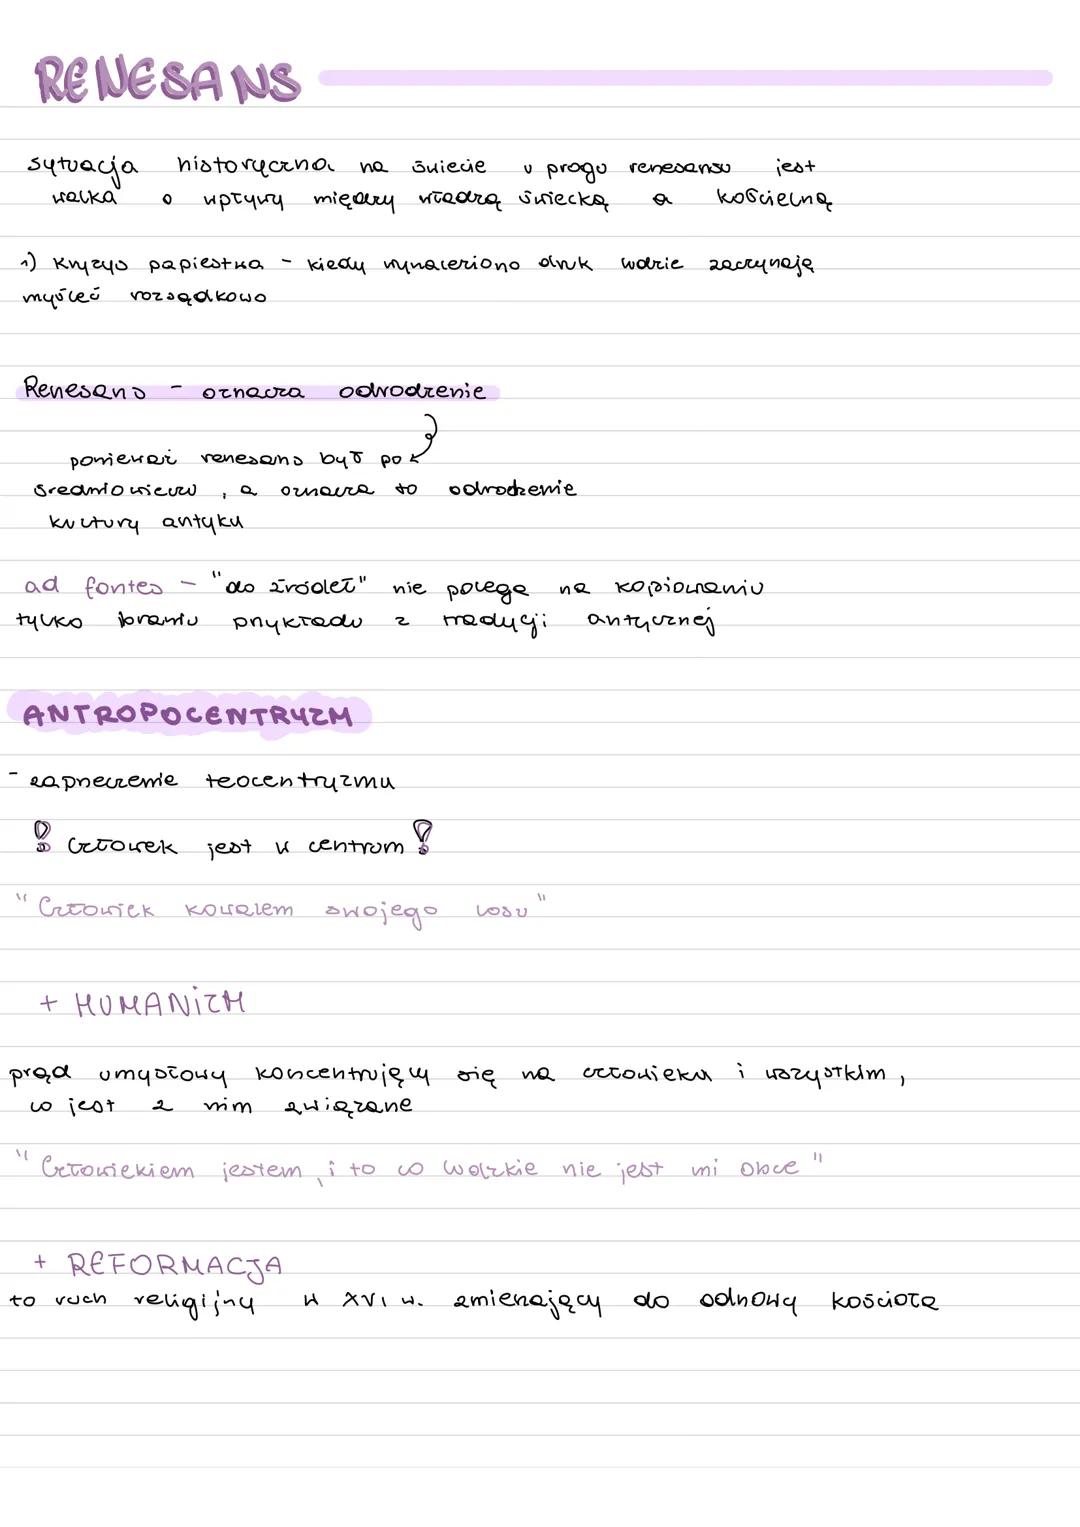 RENESANS
sytuacja historyczna na świecie u progu renesansu jest
walka o wpływy między władzą świecką a kościelną
1) kryzys papiestwa - kiedy wynaleziono druk ludzie zaczynają
myśleć rozsądkowo
Renesans - oznacza odrodzenie
ponieważ renesans był po
średniowieczu, a oznacza to odrodzenie
kultury antyku
ad fontes - "do źródeł" nie polega na kopiowaniu
tylko braniu przykładu z tradycji antycznej
ANTROPOCENTRYZM
- zaprzeczenie teocentryzmu
! Człowiek jest w centrum !
"Człowiek kowalem swojego losu"
+ HUMANIZM
prąd umysłowy koncentrujący się na człowieku i wszystkim,
co jest z nim związane
"Człowiekiem jestem, i to co ludzkie nie jest mi obce"
+ REFORMACJA
to ruch religijny w XVI w. zmierzający do odnowy kościoła